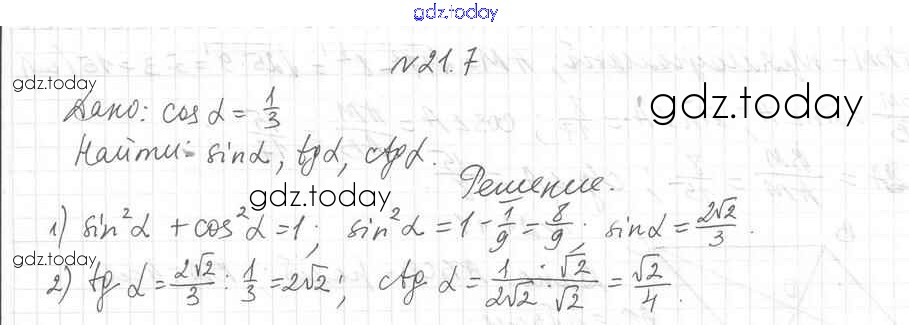 gdz.today
№21.7
gdz.today
Дано: cos α = 1/3
gdz.today
Найти: sin α, tg α, ctg α.
Решение.
gdz.today
1) sin²α + cos²α = 1; sin²α = 1 - 1/9 = 8/9; sin α = 2√2/3.
gdz.today
2) tg α = 2√2/3 : 1/3 = 2√2; ctg α = 1·√2/2√2·√2 = √2/4.